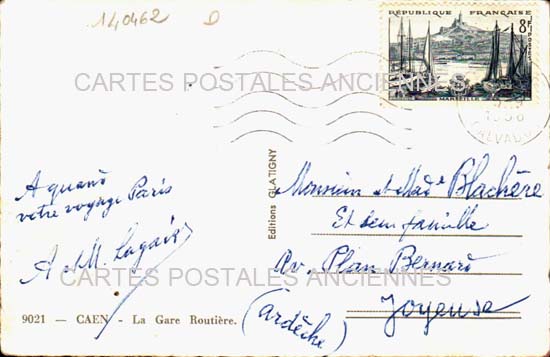 140462 D
RÉPUBLIQUE FRANÇAISE
8F
POSTES
MARSEILLE
CARTES POSTALES ANCIENNES
A quand
votre voyage Paris
A et M. Lagais
Editions GLATIGNY
Monsieur et Mad.e Blachère
Et leur famille
Av. Plan Bernard
Joyeuse
(Ardèche)
CARTES POSTALES ANCIENNES
9021 — CAEN — La Gare Routière.